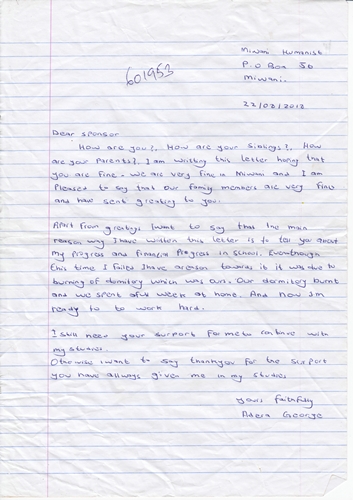 Miwani Humanist
P.O Box 50
Miwani.
601953
22/02/2012
Dear sponsor
How are you?. How are your siblings?. How
are your Parents?. I am writting this letter hoping that
you are fine. We are very fine in Miwani and I am
Pleased to say that our family members are very fine
and have sent greeting to you.
Apart from greetings I want to say that the main
reason why I have written this letter is to tell you about
my Progress and financial Progress in school. Eventhough
this time I failed I have a reason towards it it was due to
burning of domitory which was ours. Our domitory burnt
and we spent afull week at home. And now Im
ready to to work hard.
I still need your support for me to continue with
my studies.
Otherwise I want to say thankyou for the support
you have allways given me in my studies
Yours faithfully
Adera George